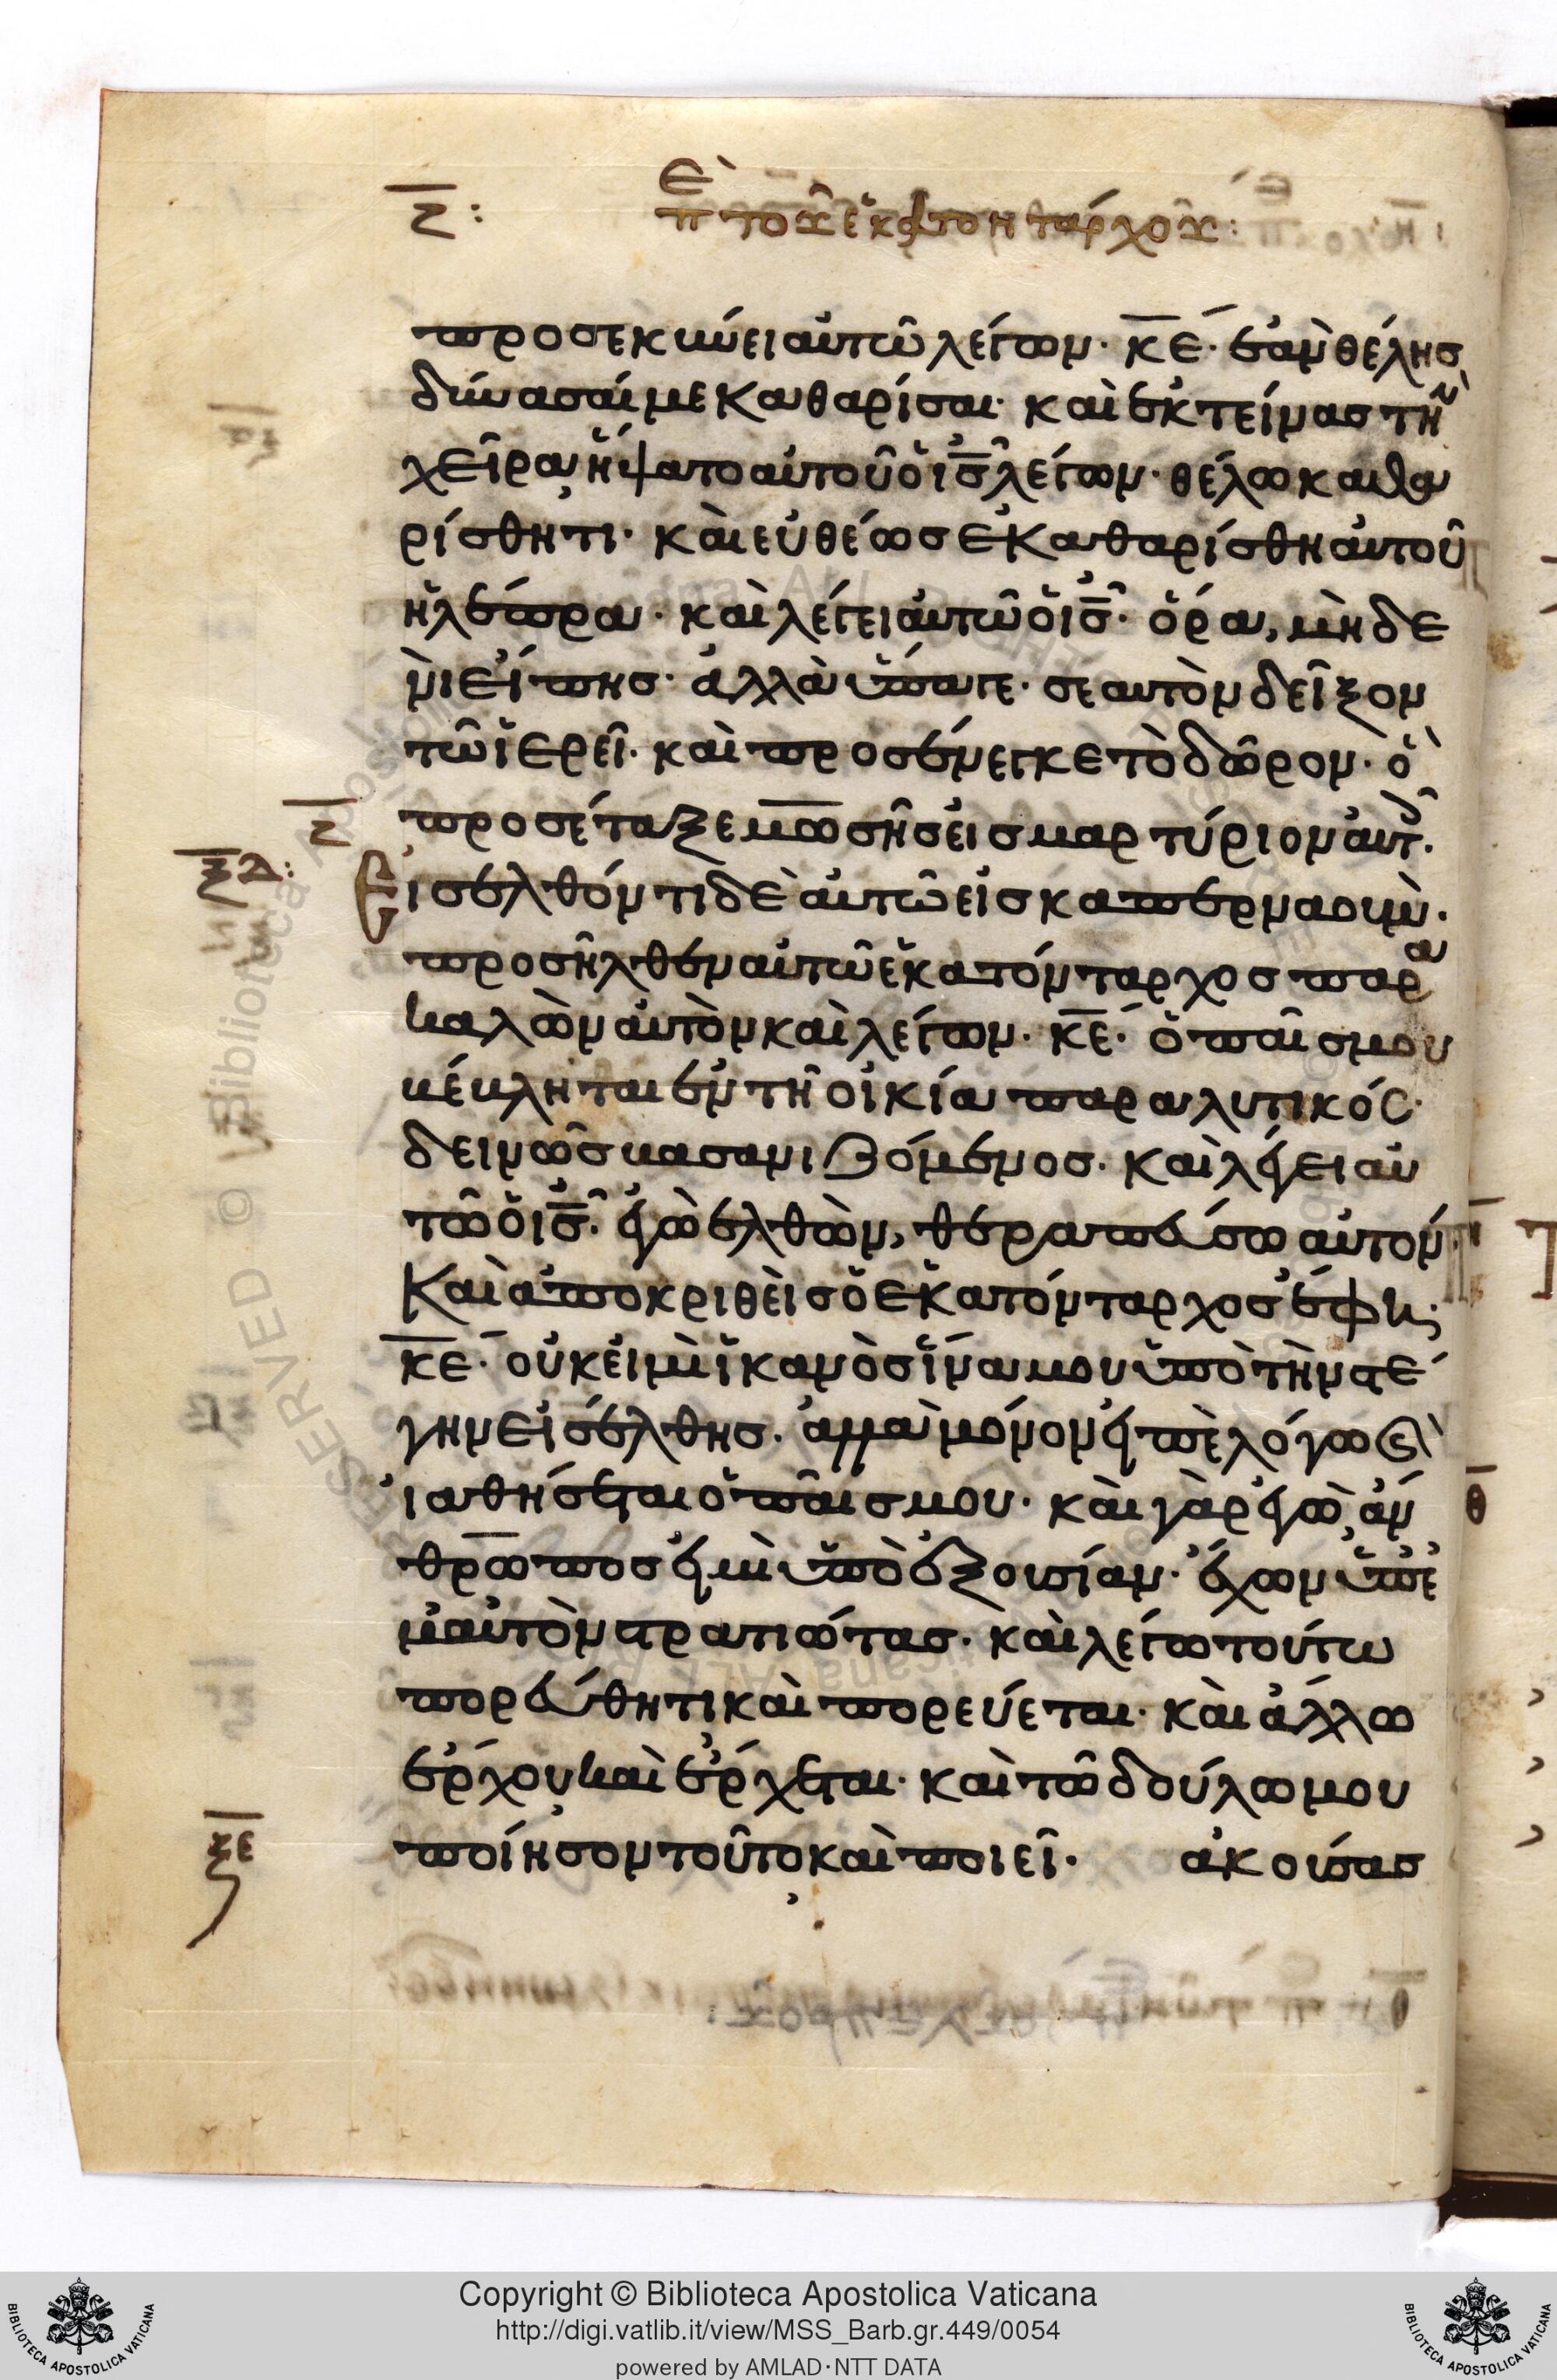 Ζ: Περὶ τοῦ ἑκατοντάρχου:
προσεκύνει αὐτῶ λέγων· κε̅· ἐὰν θέλησ
δύνασαί με καθαρίσαι· καὶ ἐκτείνας τὴν
χεῖρα ἥψατο αὐτοῦ ὁ ισ̅ λέγων· θέλω καθα
ρίσθητι· καὶ εὐθέωσ ἐκαθαρίσθη αὐτοῦ
ἡ λέπρα· καὶ λέγει αὐτῶ ὁ ισ̅· ὅρα, μηδε
νὶ εἴπησ· ἀλλὰ ὕπαγε· σεαυτὸν δεῖξον
τῶ ἱερεῖ· καὶ προσένεγκε τὸ δῶρον· ὃ
Ζ προσέταξε μωσῆσ εἰσ μαρτύριον αὐτοῖς·
ξδ: Εἰσελθόντι δὲ αὐτῶ εἰσ καπερναούμ·
προσῆλθεν αὐτῶ ἑκατόνταρχοσ παρα
καλῶν αὐτὸν καὶ λέγων· κε̅· ὁ παῖσ μου
κέκληται ἐν τῆ οἰκία παραλυτικόσ·
δεινῶσ βασανιζόμενοσ· καὶ λέγει αὐ
τῶ ὁ ισ̅· ἐγὼ ἐλθὼν, θεραπεύσω αὐτόν·
Καὶ ἀποκριθεὶσ ὁ ἑκατόνταρχοσ ἔφη·
κε̅· οὐκ εἰμὶ ἱκανὸσ ἵνα μου ὑπὸ τὴν στέ
γην εἰσέλθησ· ἀλλὰ μόνον εἰπὲ λόγω καὶ
ἰαθήσεται ὁ παῖσ μου· καὶ γὰρ ἐγὼ ἄν
θρωποσ εἰμὶ ὑπὸ ἐξουσίαν· ἔχων ὑπ' ἐ
μαυτὸν στρατιώτασ· καὶ λέγω τούτω
πορεύθητι καὶ πορεύεται· καὶ ἄλλω
ἔρχου καὶ ἔρχεται· καὶ τῶ δούλω μου
ξε ποίησον τοῦτο καὶ ποιεῖ· ἀκούσασ
Copyright © Biblioteca Apostolica Vaticana
http://digi.vatlib.it/view/MSS_Barb.gr.449/0054
powered by AMLAD·NTT DATA